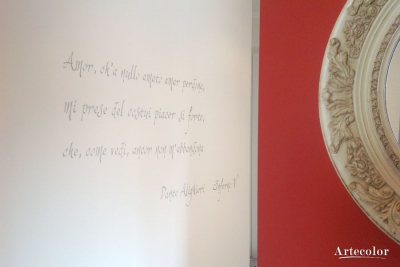 Amor, ch'a nullo amato amor perdona,
mi prese del costui piacer si forte,
che, come vedi, ancor non m'abbandona
Dante Alighieri Inferno V
Artecolor